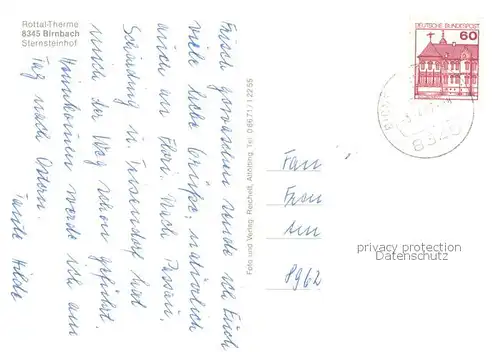 Rottal-Therme
8345 Birnbach
Sternsteinhof
sende ich Euch
viele liebe Grüße, natürlich
auch an Flori. Nach Passau,
Schärding u. hat
mich der Weg schon geführt.
Heimkommen werde ich am
Tag nach Ostern.
Tante Hilde
Foto und Verlag Reichelt, Altötting, Tel. 0 86 71 / 1 22 55
DEUTSCHE BUNDESPOST
60
8345
Fam
8962
privacy protection
Datenschutz